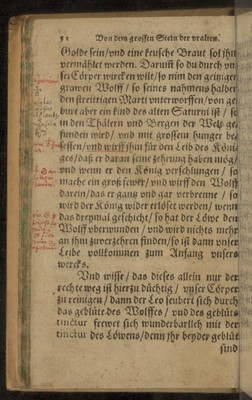 52 Von dem grossen Stein der uralten.
Golde sein/ und eine keusche Braut sol ihm
vermählet werden. Darumb so du durch un-
ser Cörper wircken wilt/ so nim den geitzigen
grawen Wolff / so seines nahmens halber
den streittigen Marti unterworffen/ von ge-
burt aber ein kind des alten Saturni ist / so
in den Thälern und Bergen der Welt ge-
funden wird/ und mit grossem hunger be-
sessen/ und wirff ihm für den Leib des Köni-
ges/ daß er daran seine zehrung haben mög/
und wenn er den König verschlungen / so
mache ein groß fewer/ und wirff den Wolff
darein/ das er gantz und gar verbrenne / so
wird der König wider erlöset werden/ wenn
das dreymal geschicht/ so hat der Löwe den
Wolff uberwunden / und wird nichts mehr
an ihm zuverzehren finden/ so ist dann unser
Leibe vollkommen zum Anfang unsers
wercks.
Und wisse / das dieses allein nur der
rechte weg ist hierzu düchtig / unser Cörper
zu reinigen / dann der Leo seubert sich durch
das geblüte des Wolffes / und des geblüts
tinctur frewet sich wunderbarlich mit der
tinctur des Löwens/ denn ihr beyder geblüt
sind